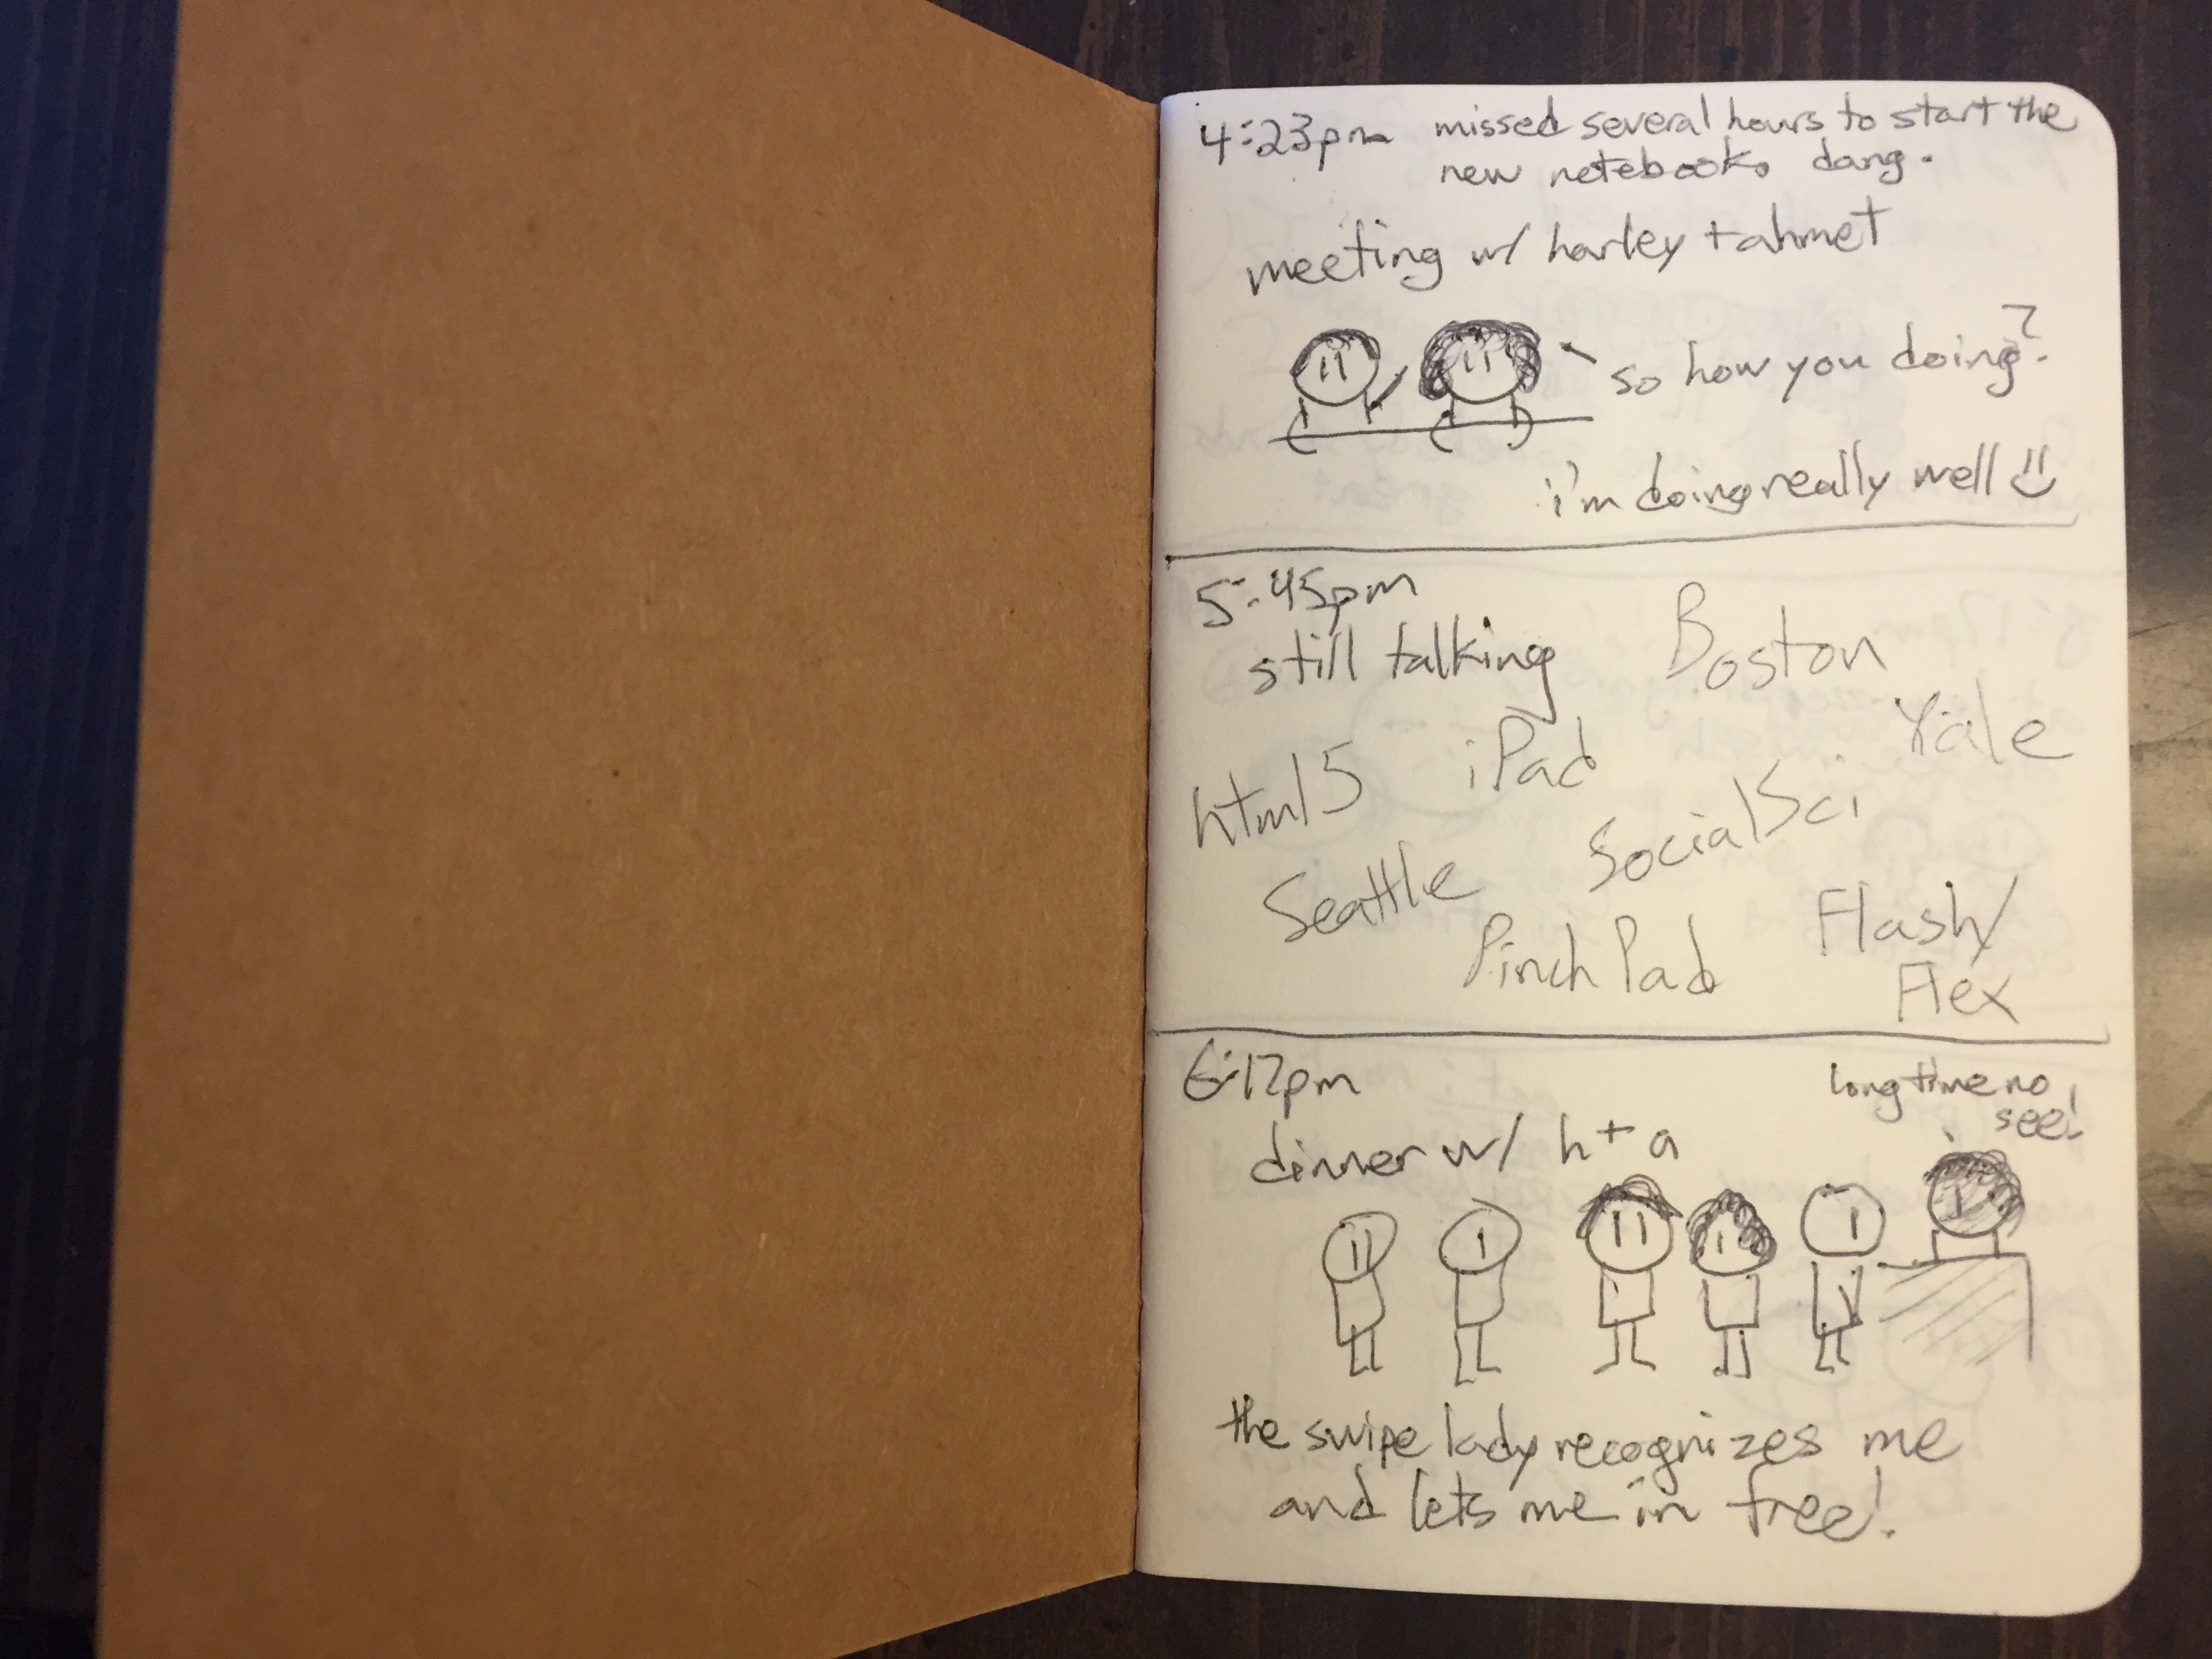 4:23pm missed several hours to start the
new notebook. dang.
meeting w/ harley + ahmet
so how you doing?
i'm doing really well
5:45pm
still talking
Boston
Yale
iPad
html5
SocialSci
Seattle
Flash/
Flex
PinchPad
6:17pm
long time no
see!
dinner w/ h + a
the swipe lady recognizes me
and lets me in free!